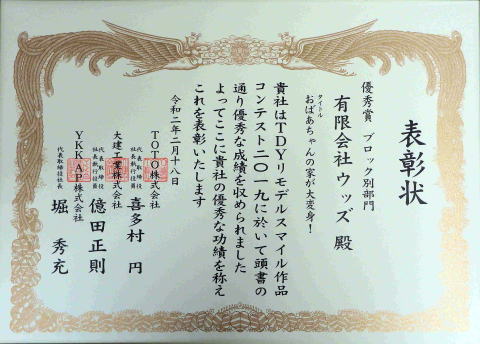 表彰状
優秀賞 ブロック別部門
有限会社ウッズ 殿
タイトル
おばあちゃんの家が大変身！
貴社はＴＤＹリモデルスマイル作品
コンテスト二〇一九に於いて頭書の
通り優秀な成績を収められました
よってここに貴社の優秀な功績を称え
これを表彰いたします
令和二年二月十八日
ＴＯＴＯ株式会社
代表取締役
社長執行役員
喜多村 円
大建工業株式会社
代表取締役
社長執行役員
億田正則
ＹＫＫ ＡＰ株式会社
代表取締役社長
堀 秀充